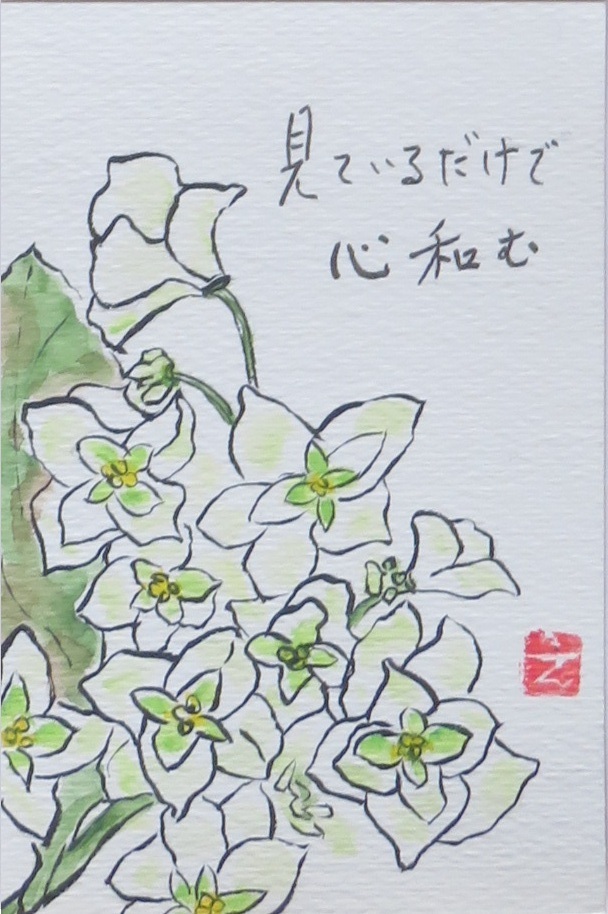 見ているだけで
心和む